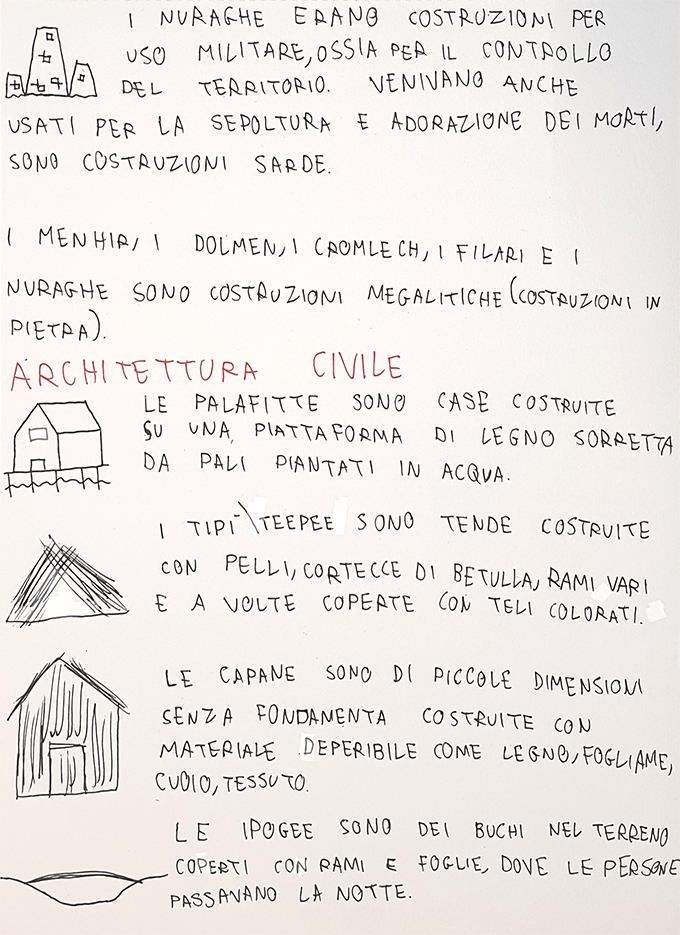 I NURAGHE ERANO COSTRUZIONI PER
USO MILITARE, OSSIA PER IL CONTROLLO
DEL TERRITORIO. VENIVANO ANCHE
USATI PER LA SEPOLTURA E ADORAZIONE DEI MORTI,
SONO COSTRUZIONI SARDE.
I MENHIR, I DOLMEN, I CROMLECH, I FILARI E I
NURAGHE SONO COSTRUZIONI MEGALITICHE (COSTRUZIONI IN
PIETRA).
ARCHITETTURA CIVILE
LE PALAFITTE SONO CASE COSTRUITE
SU UNA PIATTAFORMA DI LEGNO SORRETTA
DA PALI PIANTATI IN ACQUA.
I TIPI\TEEPEE SONO TENDE COSTRUITE
CON PELLI, CORTECCE DI BETULLA, RAMI VARI
E A VOLTE COPERTE CON TELI COLORATI.
LE CAPANE SONO DI PICCOLE DIMENSIONI
SENZA FONDAMENTA COSTRUITE CON
MATERIALE DEPERIBILE COME LEGNO, FOGLIAME,
CUOIO, TESSUTO.
LE IPOGEE SONO DEI BUCHI NEL TERRENO
COPERTI CON RAMI E FOGLIE, DOVE LE PERSONE
PASSAVANO LA NOTTE.